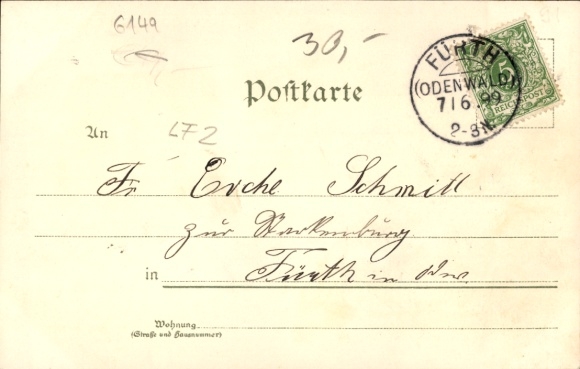 6149
30,-
FÜRTH
(ODENWALD)
7/6.99
2-3N.
5
REICHSPOST
Postkarte
An
LF2
Fr Schmitt
zur Starkenburg
in Fürth in Odw.
Wohnung
(Straße und Hausnummer)